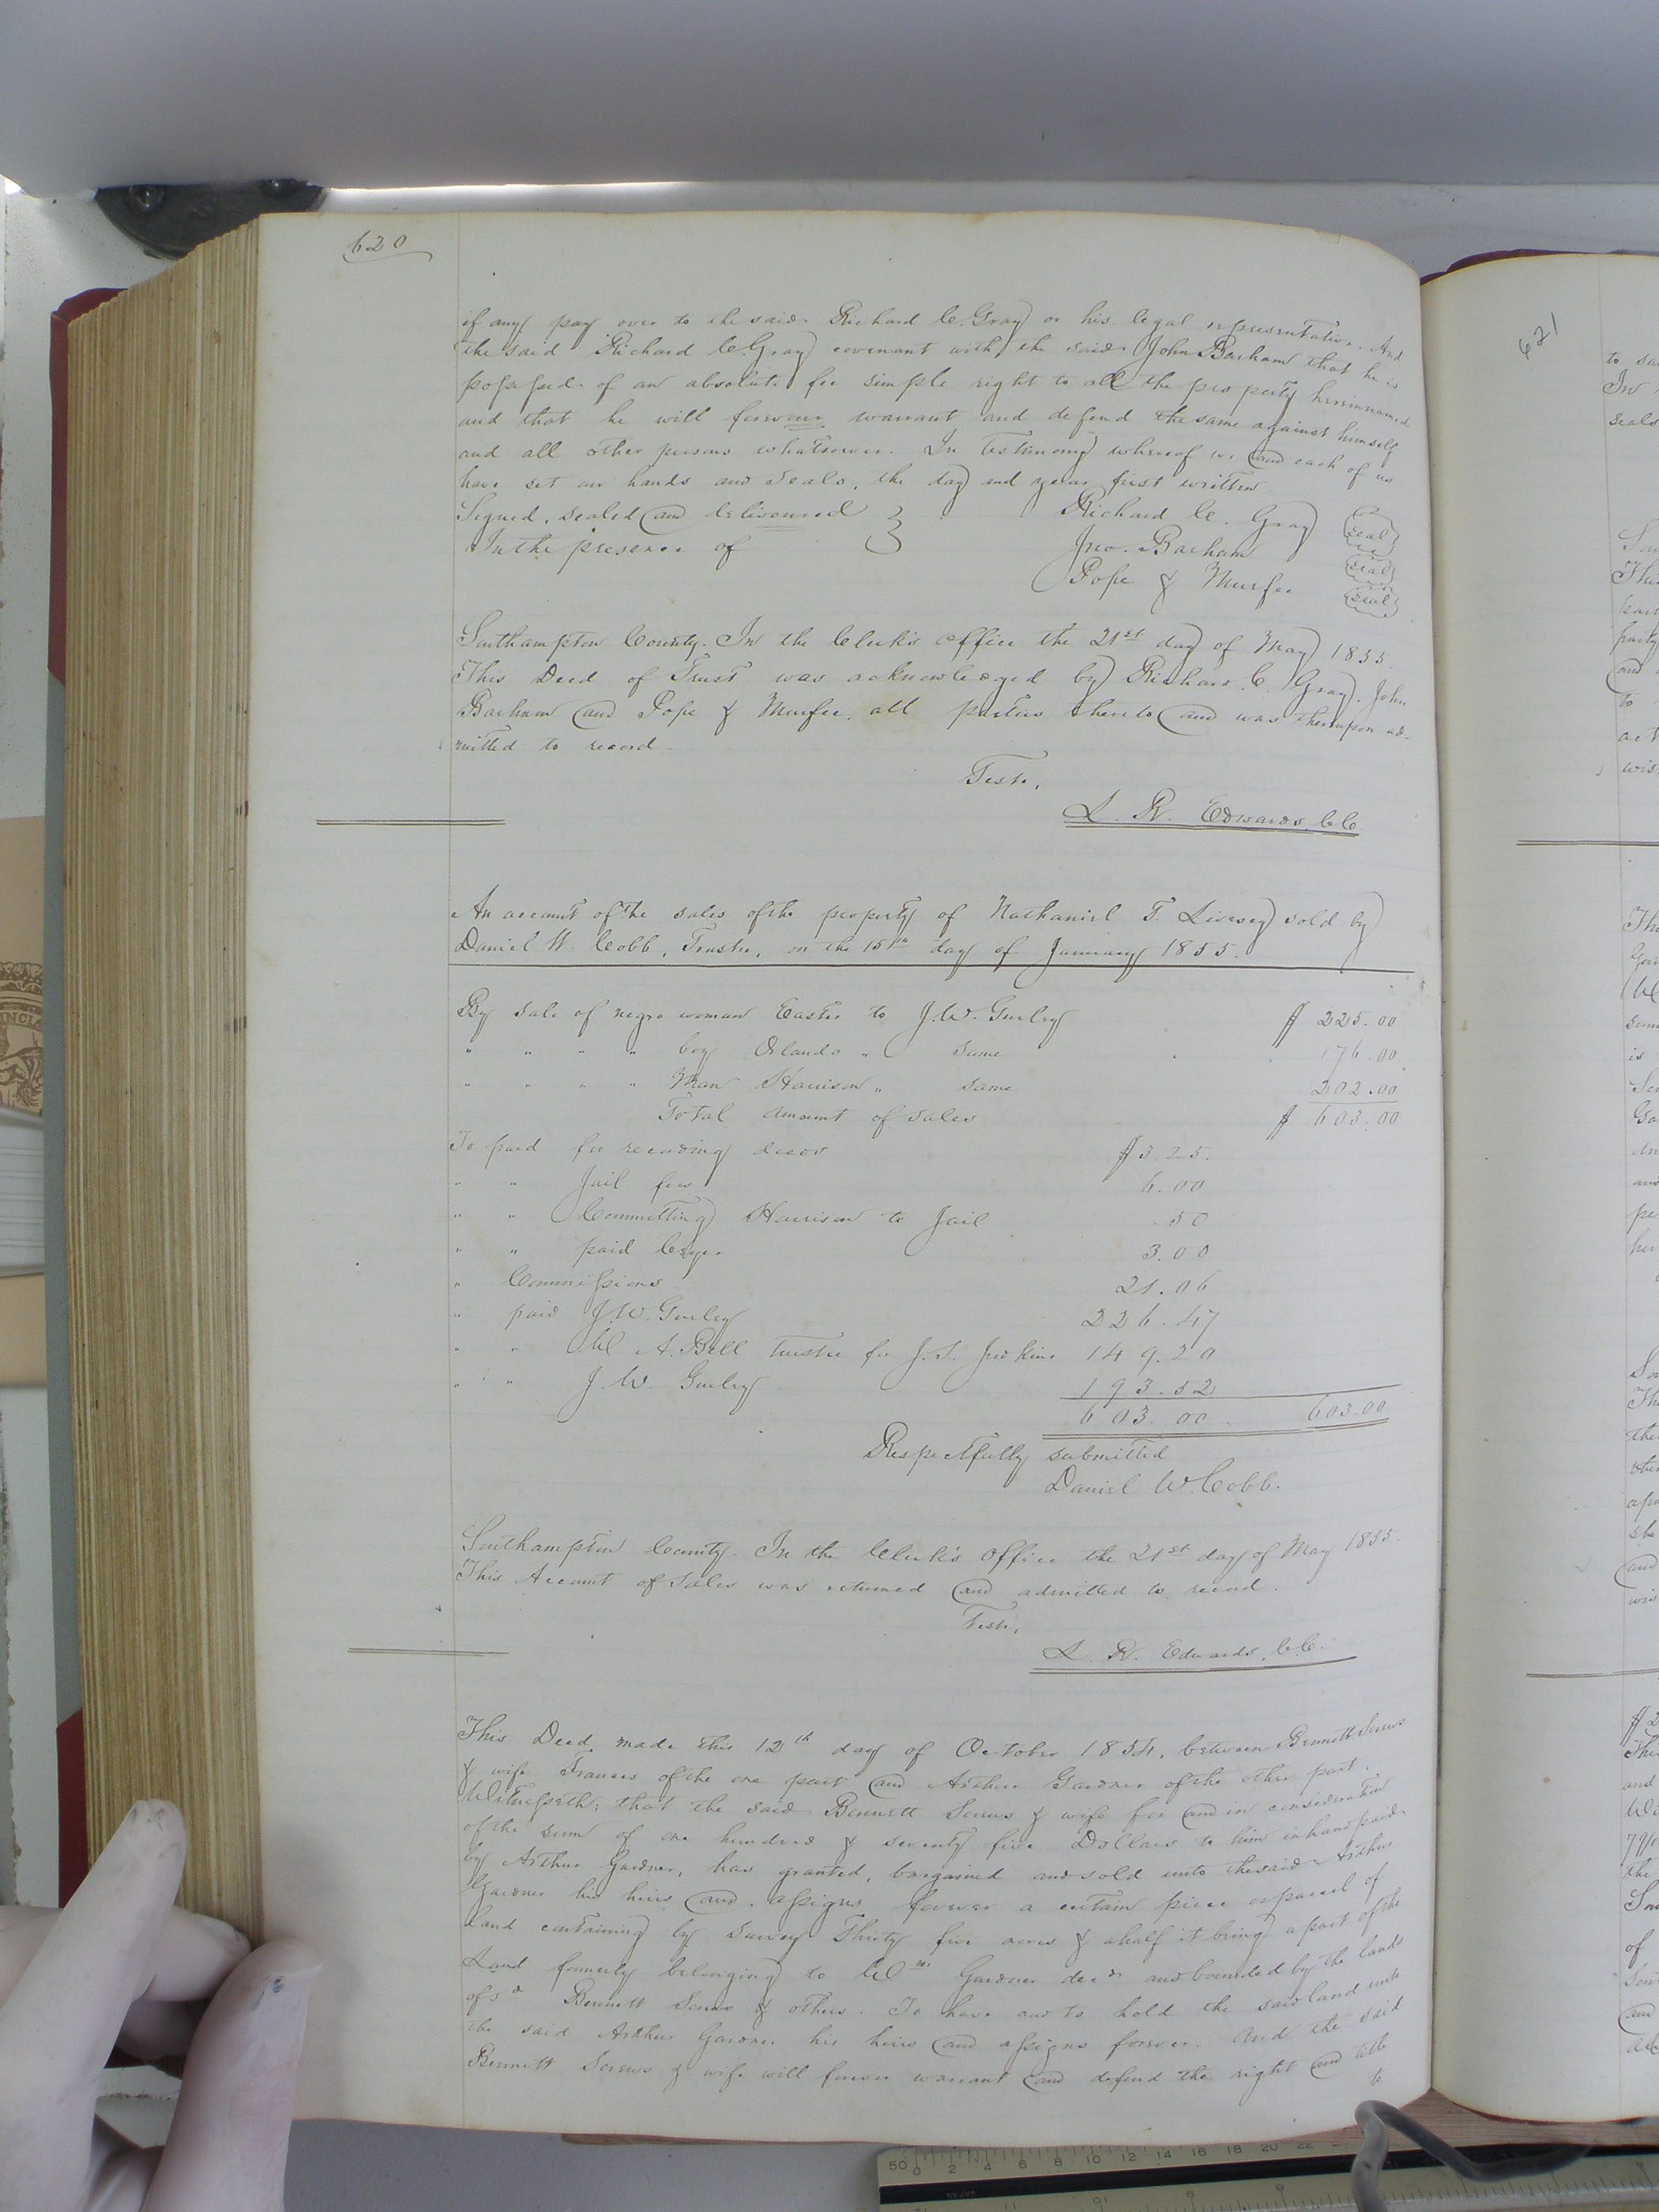 620
if any pay over to the said Richard C. Gray or his legal representative. And
the said Richard C. Gray covenant with the said John Barham that he is
possessed of an absolute fee simple right to all the property hereinnamed
and that he will forever warrant and defend the same against himself
and all other persons whatsoever. In Testimony whereof we and each of us
have set our hands and seals, the day and year first written
Signed, sealed and delivered
In the presence of
Richard C. Gray seal
Jno. Barham seal
Pope & Murfee seal
Southampton County. In the Clerk's Office the 21st day of May 1855.
This Deed of Trust was acknowledged by Richard C. Gray, John
Barham and Pope & Murfee, all parties thereto and was thereupon ad-
mitted to record
Teste,
L. R. Edwards, C.C.
An account of the sales of the property of Nathaniel T. Livesey sold by
Daniel W. Cobb, Trustee, on the 15th day of January 1855.
By sale of negro woman Easter to J. W. Gurley $ 225.00
" " " " boy Orlando " Same 176.00
" " " " Man Harrison " same 202.00
Total amount of sales $ 603.00
To paid for recording deeds $3.25.
" " Jail fees 6.00
" " Committing Harrison to Jail .50
" " paid 3.00
" Commissions 21.06
" paid J. W. Gurley 226.47
" " W A. Bell Trustee for J. S. 149.20
" " J. W. Gurley 193.52
603.00 603.00
Respectfully submitted
Daniel W. Cobb.
Southampton County. In the Clerk's Office the 21st day of May 1855.
This Account of Sales was returned and admitted to record.
Teste,
L. R. Edwards, C.C.
This Deed made this 12th day of October 1854, between Bennett Screws
& wife Frances of the one part and Arthur Gardner of the other part.
Witnesseth; that the said Bennett Screws & wife for and in consideration
of the sum of one hundred & seventy five Dollars to him in hand paid
by Arthur Gardner, has granted, bargained and sold unto the said Arthur
Gardner his heirs and assigns forever a certain piece or parcel of
land containing by survey Thirty five acres & a half it being a part of the
Land formerly belonging to Wm Gardner decd and bounded by the lands
of sd Bennett Screws & others. To have and to hold the said land unto
the said Arthur Gardner his heirs and assigns forever. And the said
Bennett Screws & wife will forever warrant and defend the right and title
to
621
to
In
seals